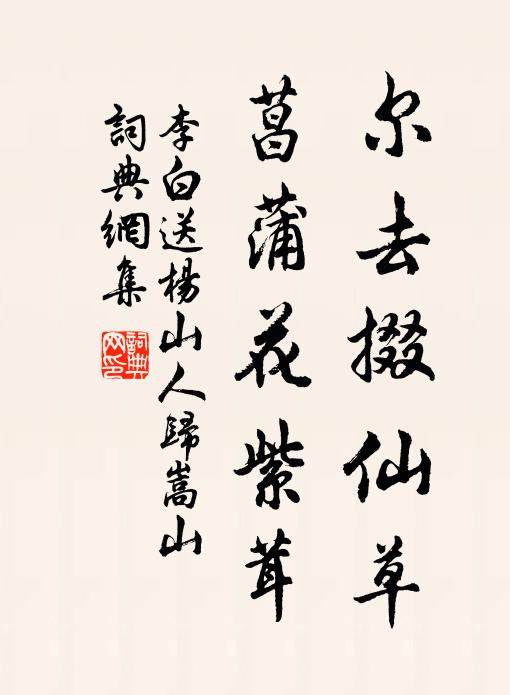 尔去掇仙草
菖蒲花紫茸
李白送楊山人歸嵩山
詞典網集
詞典网印